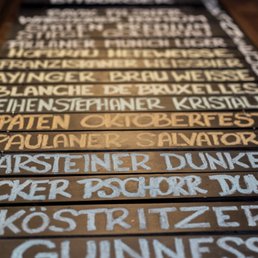 PAULANER MUNICH LAGER
FRANZISKANER HEFEWEISSE
AYINGER BRAU WEISSE
BLANCHE DE BRUXELLES
EIHENSTEPHANER KRISTAL
PATEN OKTOBERFES
PAULANER SALVATOR
ARSTEINER DUNKE
CKER PSCHORR DUN
KÖSTRITZER
GUINNESS